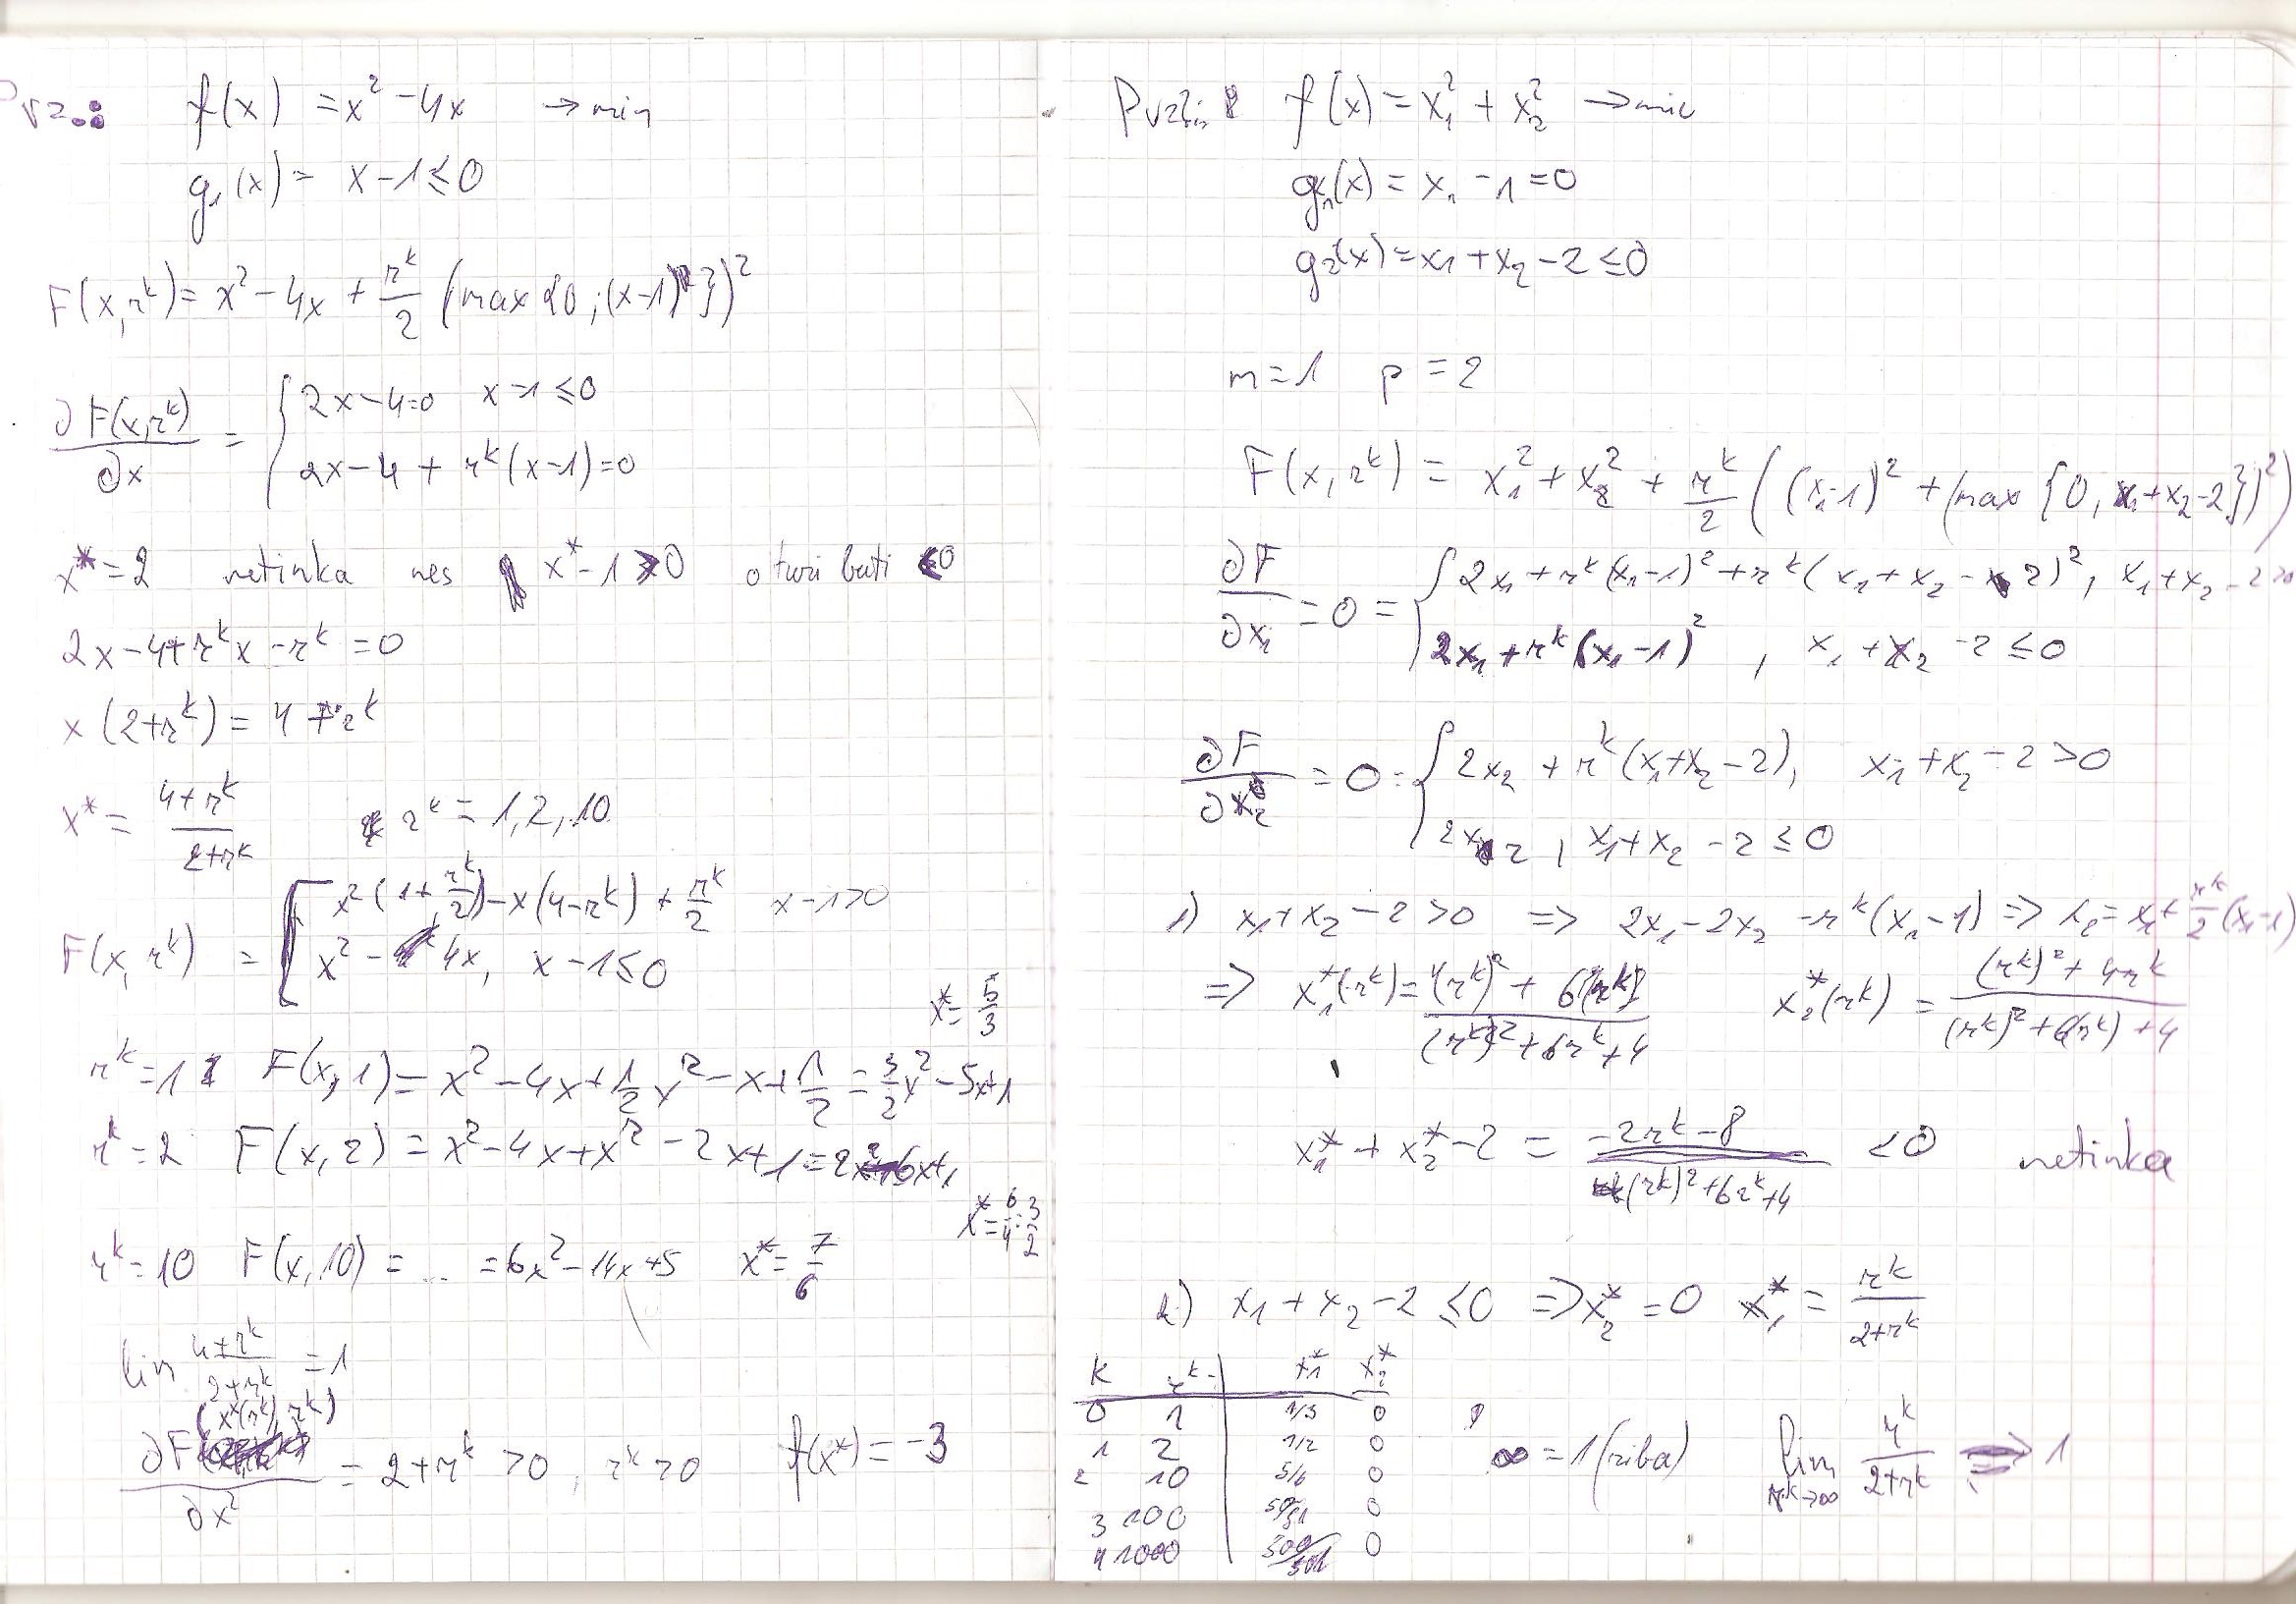 Pvz.:
f(x) = x² - 4x → min
g₁(x) = x - 1 ≤ 0
F(x, r^k) = x² - 4x + r^k/2 (max {0; (x-1)})²
∂F(x, r^k)/∂x = { 2x - 4 = 0    x - 1 ≤ 0
2x - 4 + r^k(x-1) = 0
x* = 2 netinka nes x* - 1 > 0 o turi buti ≤ 0
2x - 4 + r^k x - r^k = 0
x(2 + r^k) = 4 + r^k
x* = (4 + r^k)/(2 + r^k)    r^k = 1, 2, 10
F(x, r^k) = [ x²(1 + r^k/2) - x(4 - r^k) + r^k/2    x - 1 > 0
x² - 4x,    x - 1 ≤ 0
x* = 5/3
r^k = 1 F(x, 1) = x² - 4x + 1/2 x² - x + 1/2 = 3/2 x² - 5x + 1
r^k = 2 F(x, 2) = x² - 4x + x² - 2x + 1 = 2x² - 6x + 1
x* = 6/4 = 3/2
r^k = 10 F(x, 10) = ... = 6x² - 14x + 5    x* = 7/6
lim (4 + r^k)/(2 + r^k) = 1
∂F(x*(r^k), r^k)/∂x² = 2 + r^k > 0, r^k > 0    f(x*) = -3
f(x) = x₁² + x₂² → min
g₁(x) = x₁ - 1 = 0
g₂(x) = x₁ + x₂ - 2 ≤ 0
m = 1    p = 2
F(x, r^k) = x₁² + x₂² + r^k/2 ((x₁-1)² + (max {0, x₁+x₂-2})²)
∂F/∂x₁ = 0 = { 2x₁ + r^k(x₁-1)² + r^k(x₁ + x₂ - 2)², x₁ + x₂ - 2 > 0
2x₁ + r^k(x₁-1)², x₁ + x₂ - 2 ≤ 0
∂F/∂x₂ = 0 = { 2x₂ + r^k(x₁+x₂-2), x₁ + x₂ - 2 > 0
2x₂, x₁ + x₂ - 2 ≤ 0
1) x₁ + x₂ - 2 > 0 ⇒ 2x₁ - 2x₂ - r^k(x₁-1) ⇒ x₂ = x₁ + r^k/2 (x₁-1)
⇒ x₁*(r^k) = ((r^k)² + 6(r^k))/((r^k)² + 6r^k + 4)    x₂*(r^k) = ((r^k)² + 4r^k)/((r^k)² + 6(r^k) + 4)
x₁* + x₂* - 2 = (-2r^k - 8)/((r^k)² + 6r^k + 4) < 0 netinka
2) x₁ + x₂ - 2 ≤ 0 ⇒ x₂* = 0    x₁* = r^k/(2 + r^k)
k r^k x₁* x₂*
0 1 1/3 0
1 2 1/2 0
2 10 5/6 0
3 100 50/51 0
4 1000 500/501 0
∞ = 1 (riba)    lim r^k→∞ r^k/(2 + r^k) ⇒ 1